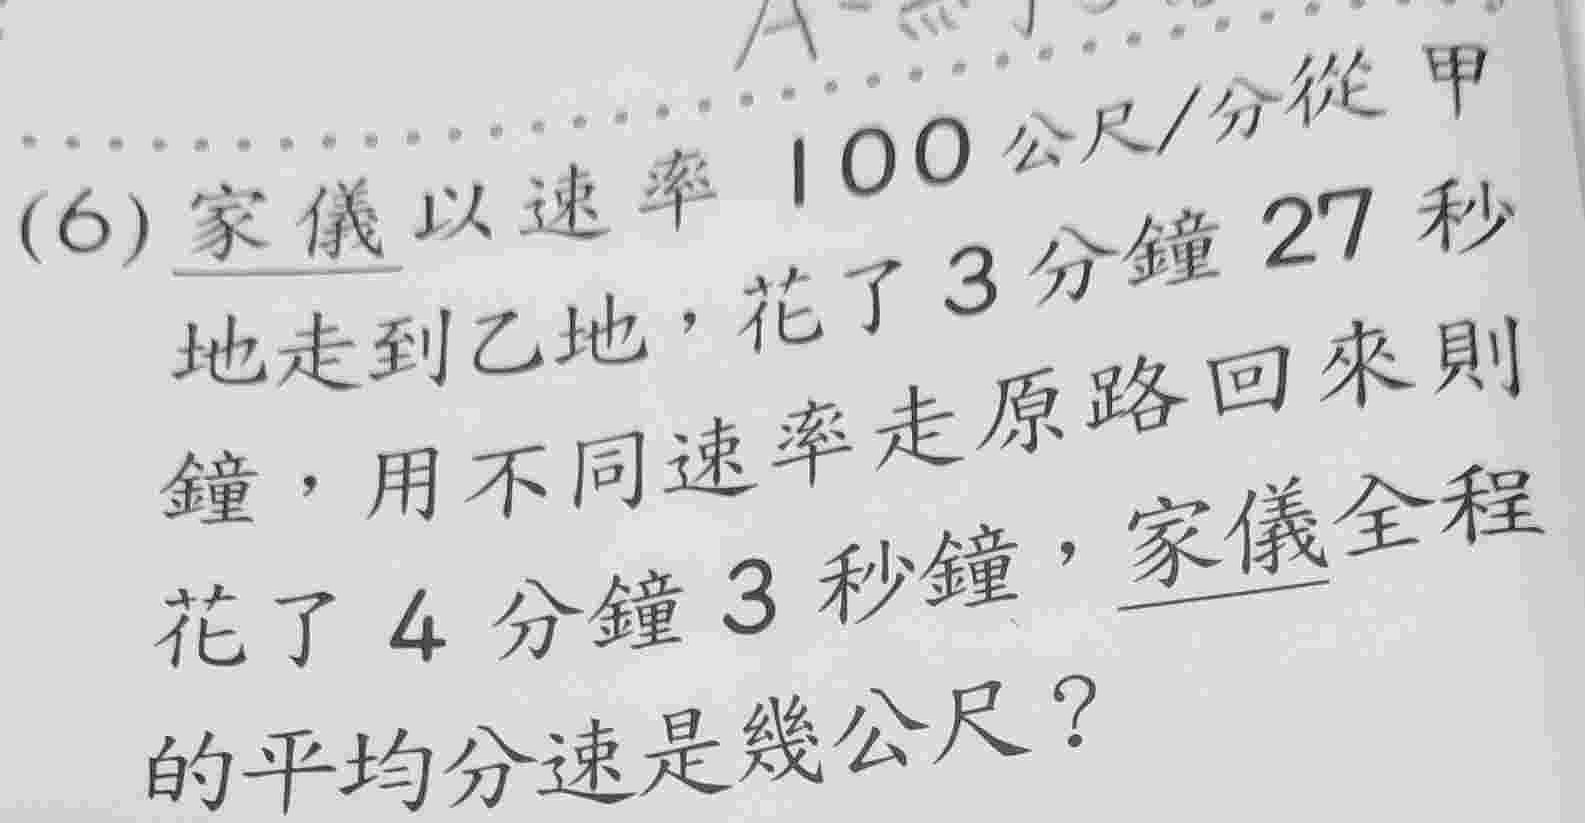 (6) 家儀以速率 100 公尺/分從甲
地走到乙地，花了 3 分鐘 27 秒
鐘，用不同速率走原路回來則
花了 4 分鐘 3 秒鐘，家儀全程
的平均分速是幾公尺？